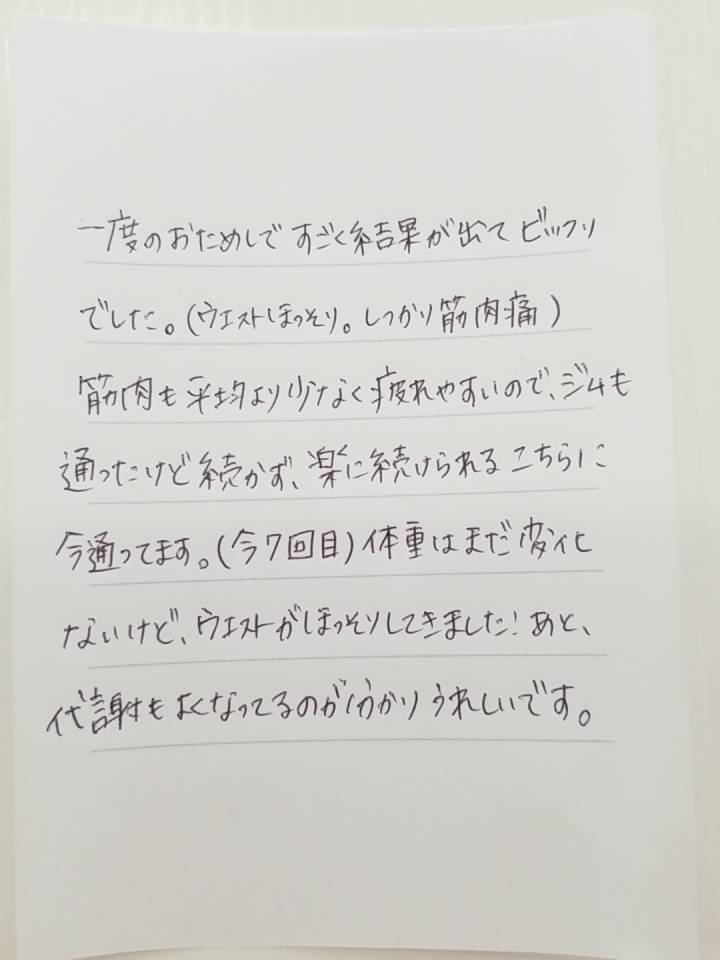 一度のおためしですごく結果が出てビックリ
でした。(ウエストほっそり。しっかり筋肉痛)
筋肉も平均より少なく疲れやすいので、ジムも
通ったけど続かず、楽に続けられるこちらに
今通ってます。(今7回目)体重はまだ変化
ないけど、ウエストがほっそりしてきました!あと、
代謝もよくなってるのが分かりうれしいです。